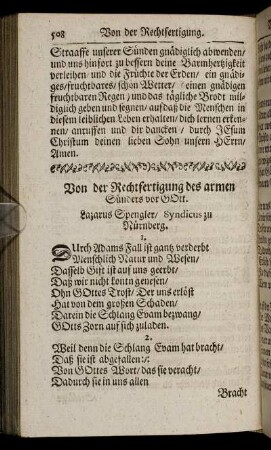 508 Von der Rechtfertigung.
Straaffe unserer Sünden gnädiglich abwenden/
und uns hinfort zu bessern deine Barmhertzigkeit
verleihen und die Früchte der Erden/ ein gnädi-
ges/fruchtbares/schön Wetter/ einen gnädigen
fruchtbaren Regen/ und das tägliche Brodt mil-
diglich geben und segnen/ auf daß die Menschen in
diesem leiblichen Leben erhalten/ dich lernen erken-
nen/ anruffen und dir dancken/ durch JEsum
Christum deinen lieben Sohn unsern HErrn/
Amen.
Von der Rechtfertigung des armen
Sünders vor GOtt.
Lazarus Spengler/ Syndicus zu
Nürnberg.
1.
DUrch Adams Fall ist gantz verderbt
Menschlich Natur und Wesen/
Dasselb Gift ist auf uns geerbt/
Daß wir nicht konten genesen/
Ohn GOttes Trost/ Der uns erlöst
Hat von dem großen Schaden/
Darein die Schlang Evam bezwang/
GOtts Zorn auf sich zuladen.
2.
Weil denn die Schlang Evam hat bracht/
Daß sie ist abgefallen:/:
Von GOttes Wort/ das sie veracht/
Dadurch sie in uns allen
Bracht